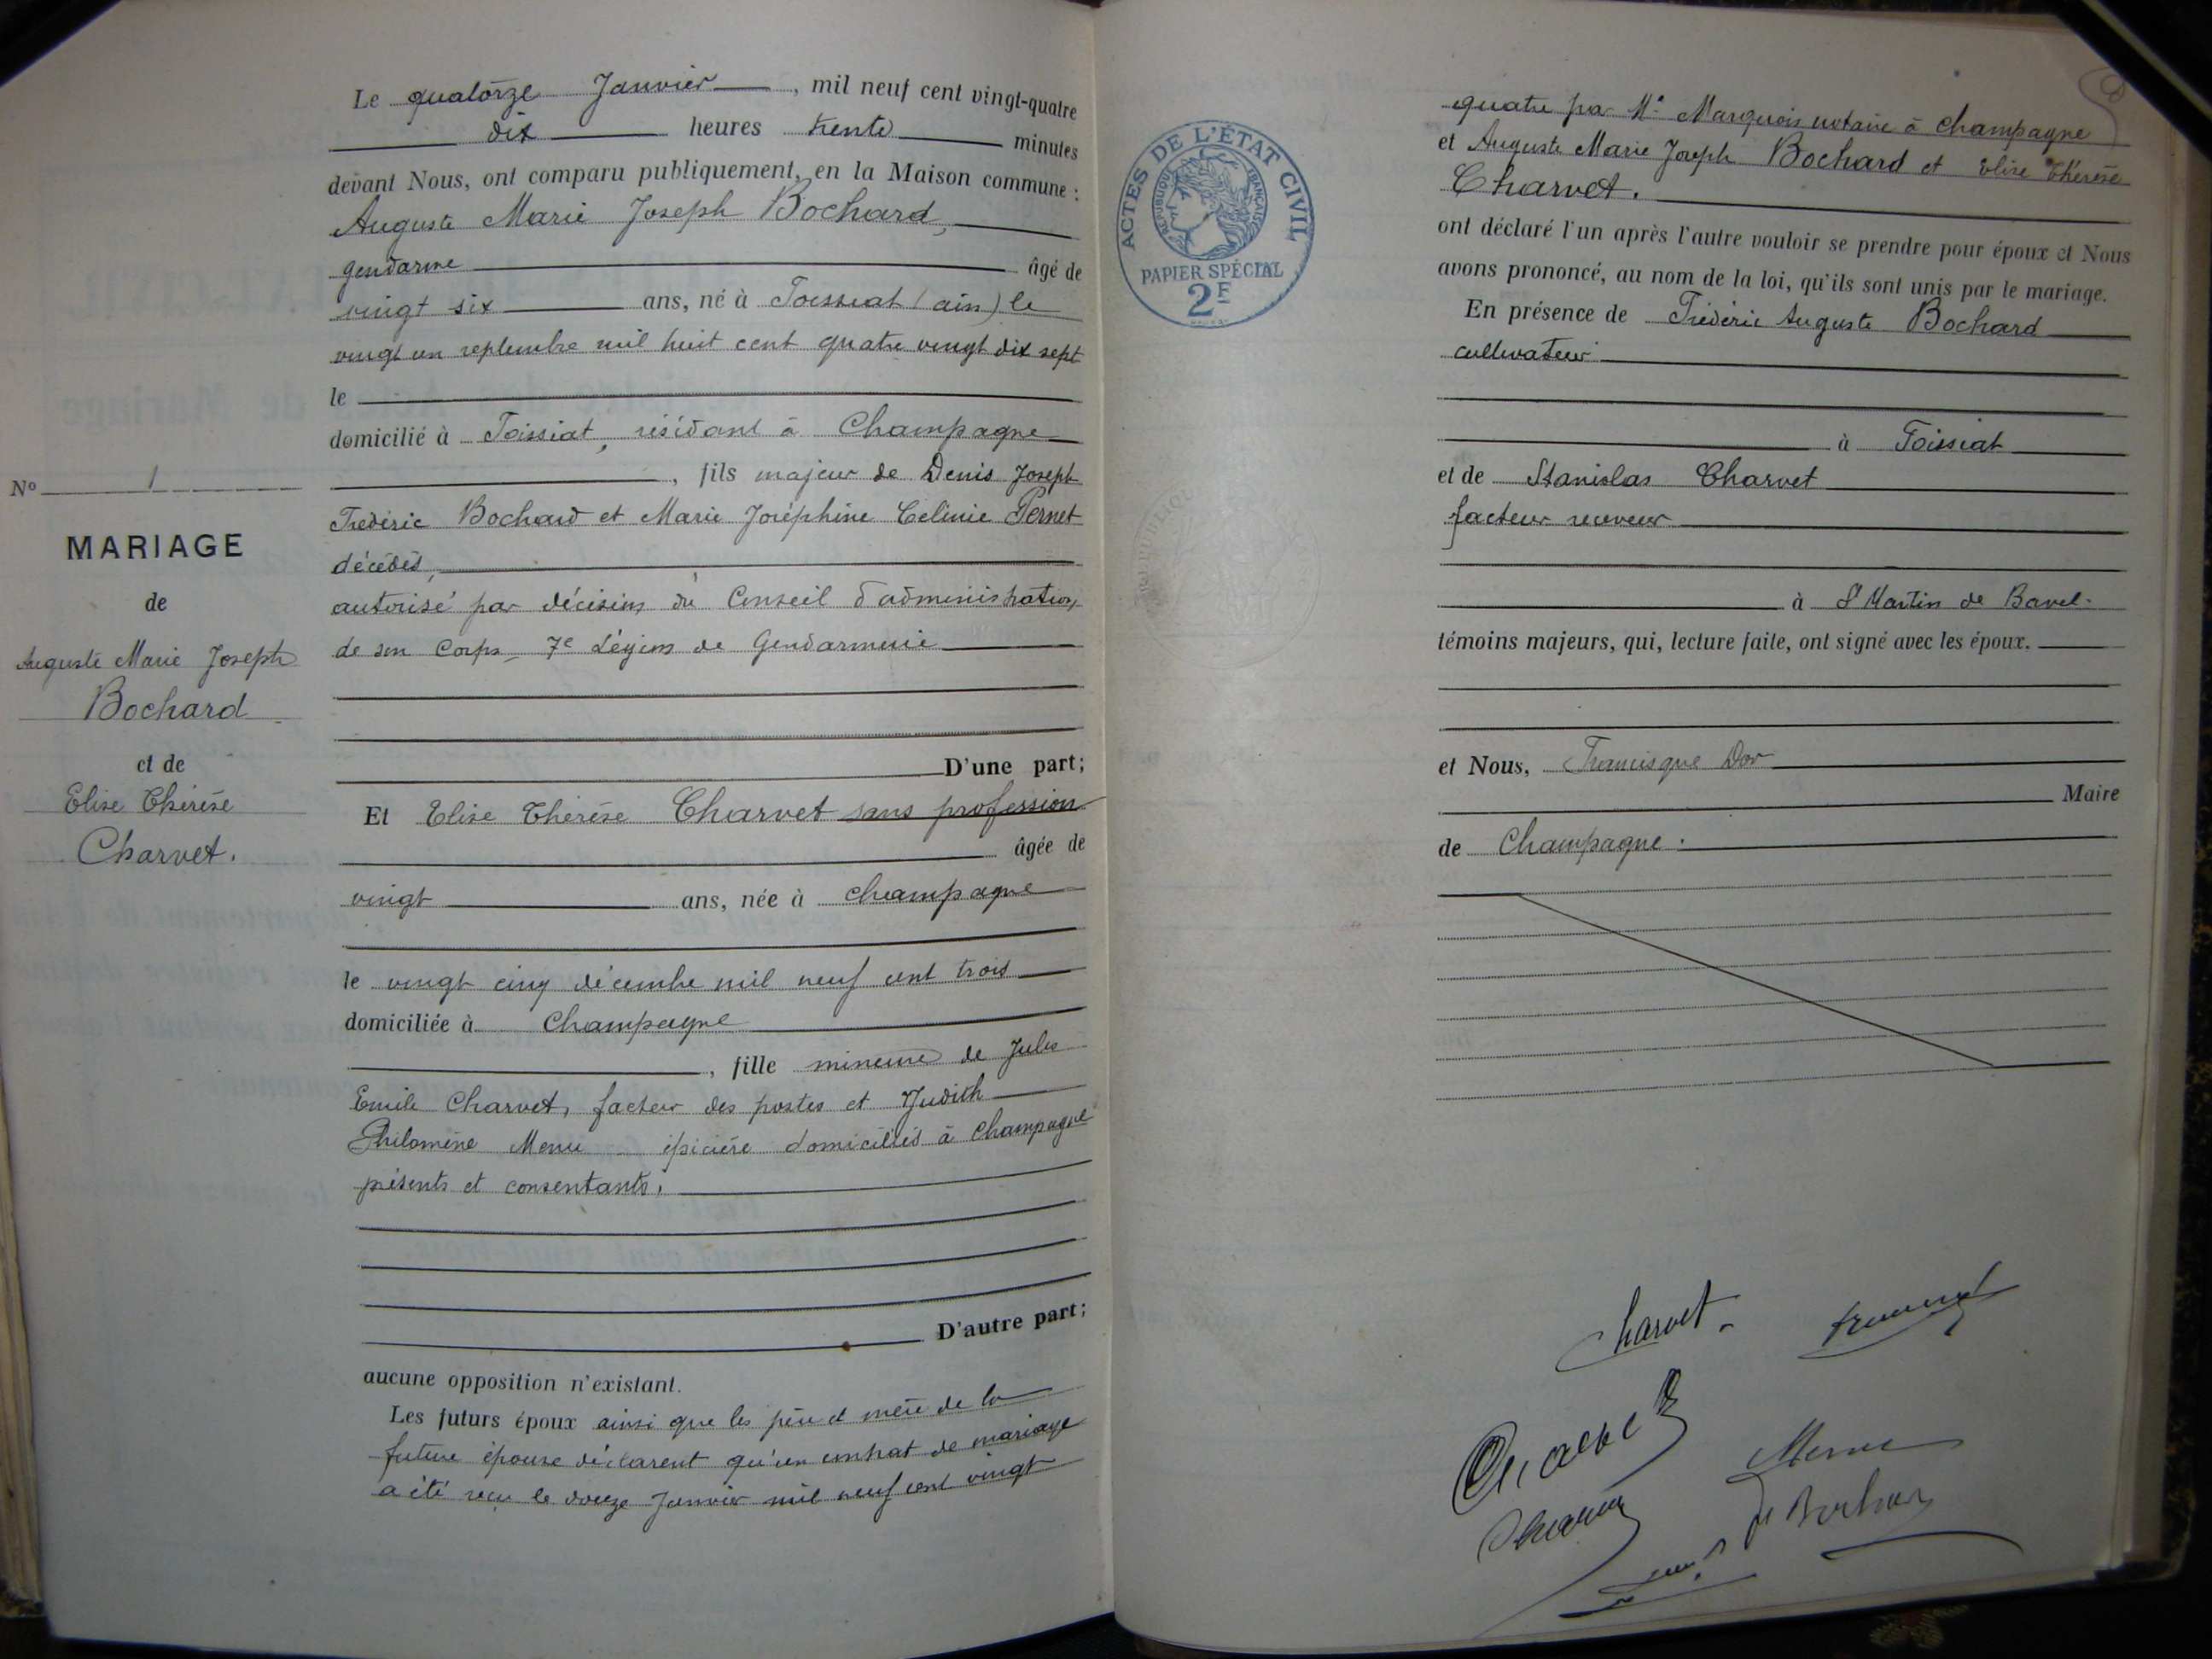 Le quatorze Janvier, mil neuf cent vingt-quatre
dix heures trente minutes
devant Nous, ont comparu publiquement, en la Maison commune :
Auguste Marie Joseph Bochard,
gendarme âgé de
vingt six ans, né à Toissiat (ain) le
vingt un septembre mil huit cent quatre vingt dix sept
le
domicilié à Toissiat, résidant à Champagne
, fils majeur de Denis Joseph
Frédéric Bochard et Marie Joséphine Celinie Pernet
décédés,
autorisé par décision du Conseil d'administration
de son Corps 7e Légion de Gendarmerie
D'une part;
Nº 1
MARIAGE
de
Auguste Marie Joseph
Bochard
et de
Elise Thérèse
Charvet.
Et Elise Thérèse Charvet sans profession
âgée de
vingt ans, née à champagne
le vingt cinq décembre mil neuf cent trois
domiciliée à Champagne
, fille mineure de Jules
Emile Charvet, facteur des postes et Judith
Philomène Menu épicière domiciliés à Champagne
présents et consentants.
D'autre part;
aucune opposition n'existant.
Les futurs époux ainsi que les père et mère de la
future épouse déclarent qu'un contrat de mariage
a été reçu le douze Janvier mil neuf cent vingt
ACTES DE L'ÉTAT CIVIL
RÉPUBLIQUE FRANÇAISE
PAPIER SPÉCIAL
2F
quatre par Me Marquois notaire à champagne
et Auguste Marie Joseph Bochard et Elise Thérèse
Charvet.
ont déclaré l'un après l'autre vouloir se prendre pour époux et Nous
avons prononcé, au nom de la loi, qu'ils sont unis par le mariage.
En présence de Frédéric Auguste Bochard
cultivateur
à Toissiat
et de Stanislas Charvet
facteur receveur
à St Martin de Bavel.
témoins majeurs, qui, lecture faite, ont signé avec les époux.
et Nous, Francisque Dor
Maire
de Champagne.
Charvet
Menu
Bochard